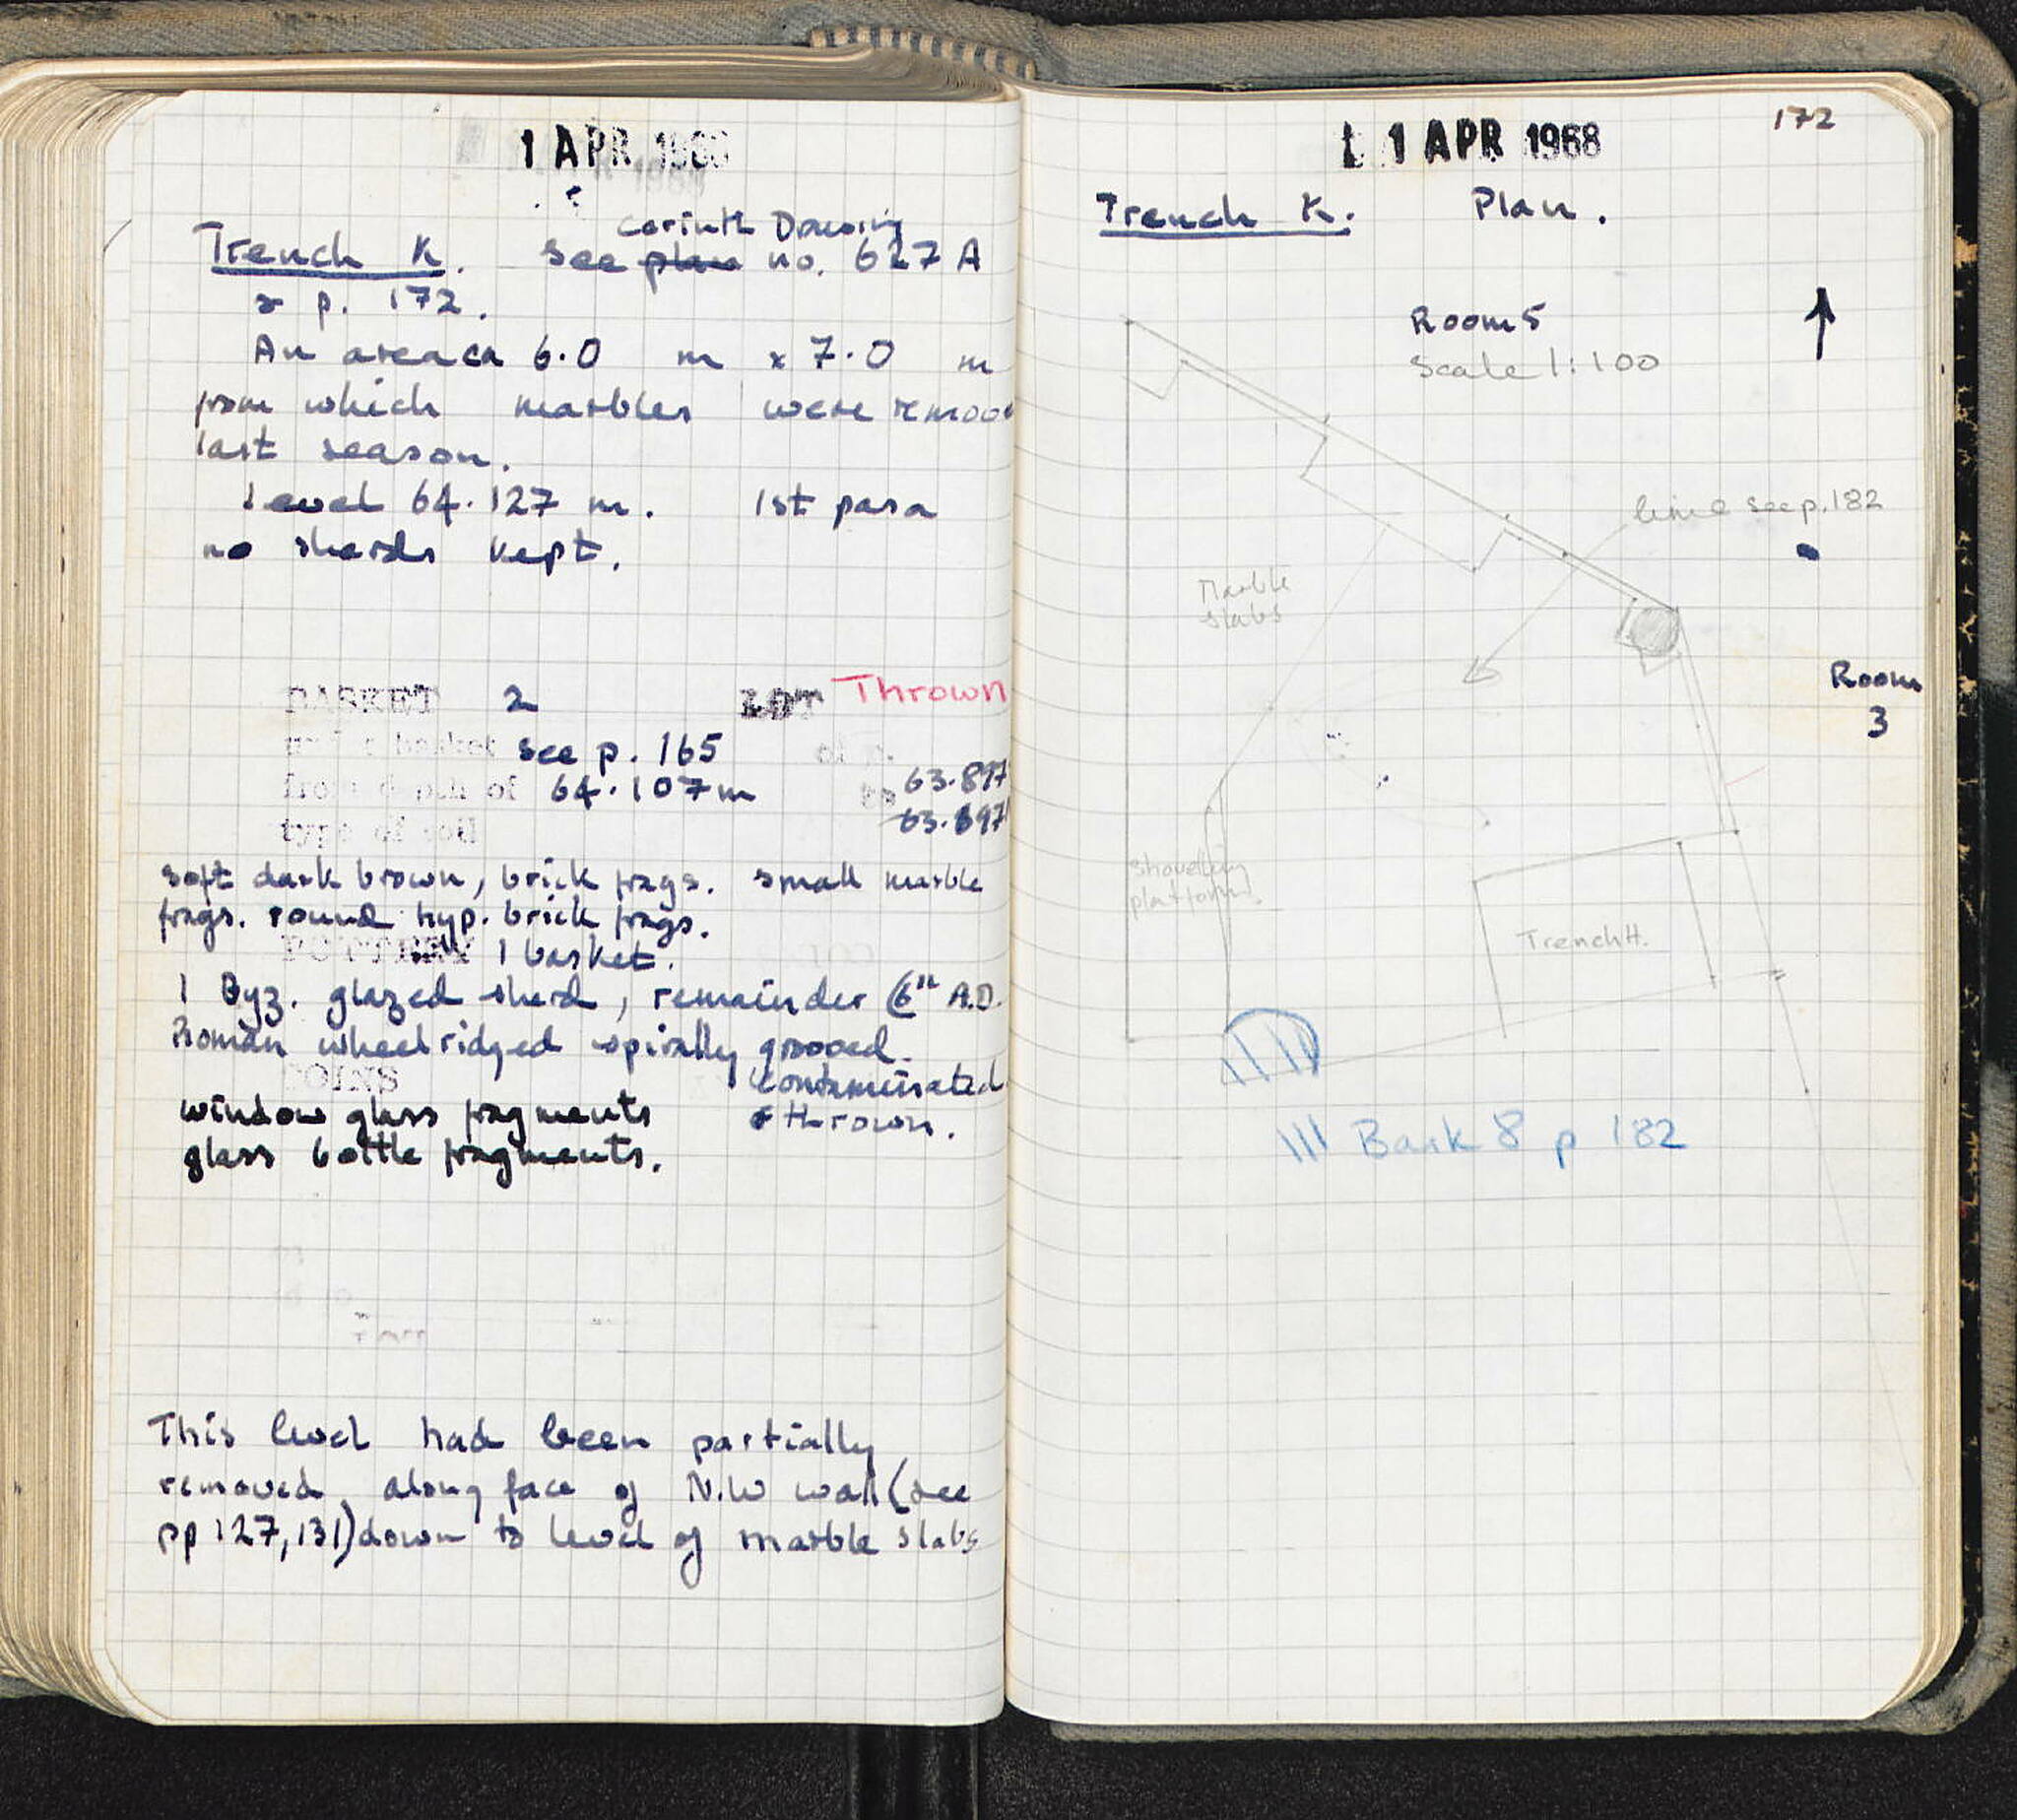 1 APR 1968
Corinth Drawing
Trench K. See plan no. 627 A
& p. 172.
An area ca 6.0 m x 7.0 m
from which marbles were remov
last season.
Level 64.127 m. 1st pass
no sherds kept.
BASKET 2 LOT Thrown
basket see p. 165
from depth of 64.107m to 63.897
63.697
type of soil
soft dark brown, brick frags. small marble
frags. round hyp. brick frags.
POTTERY 1 basket.
1 Byz. glazed sherd, remainder C6th A.D.
Roman wheel ridged spirally grooved.
COINS contaminated
window glass fragments & thrown.
glass bottle fragments.
This level had been partially
removed, along face of N.W wall (see
pp 127, 131) down to level of marble slabs
172
1 APR 1968
Trench K. Plan.
Room 5
Scale 1:100
line see p. 182
Marble
slabs
Room
3
Shovelling
platform.
Trench H.
Bask 8 p 182